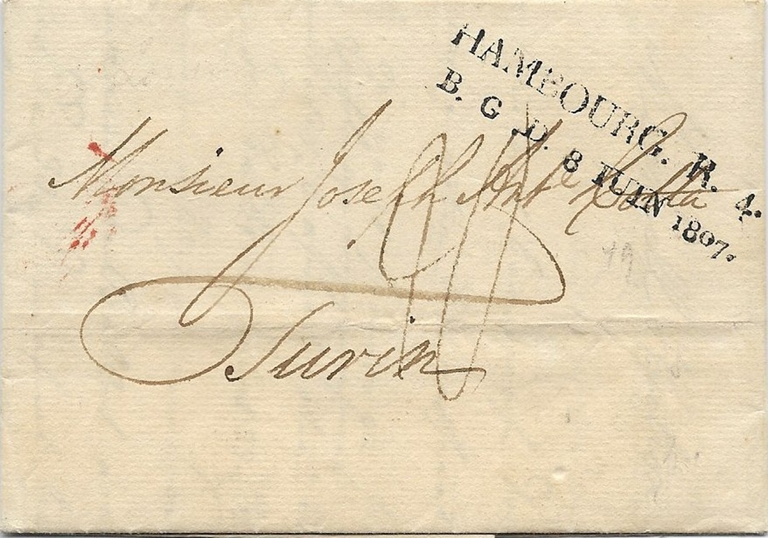 HAMBOURG. R. 4.
B. G. D. 8 JUIN 1807.
Monsieur Joseph Ant.e
Turin